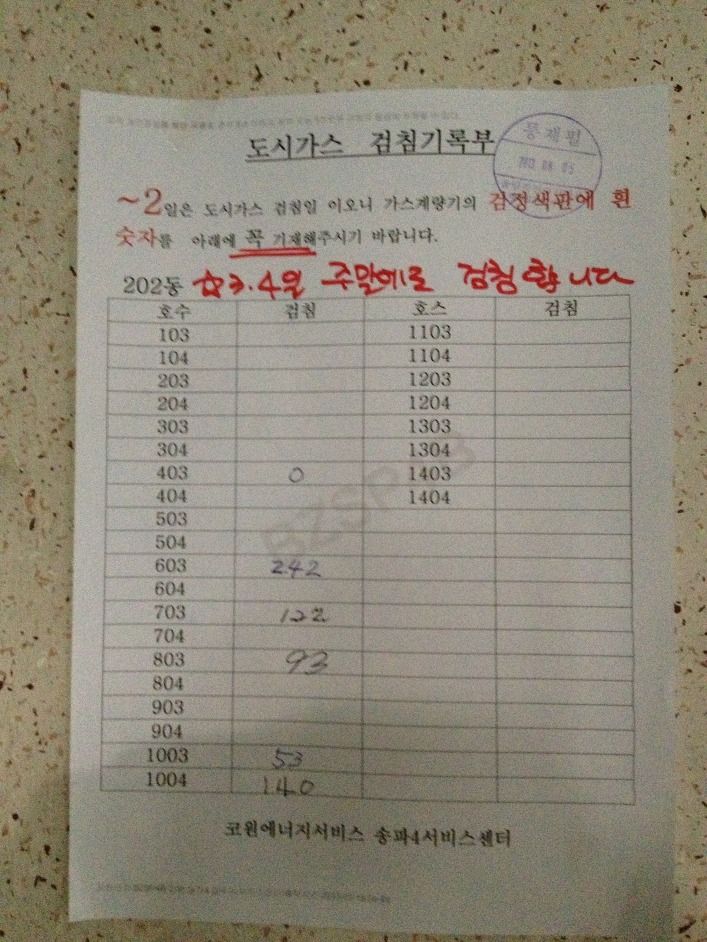 도시가스 검침기록부
~2일은 도시가스 검침일 이오니 가스계량기의 검정색판에 흰
숫자를 아래에 꼭 기재해주시기 바랍니다.
202동 ☆3.4일 주말에로 검침합니다
호수 검침 호스 검침
103 1103
104 1104
203 1203
204 1204
303 1303
304 1304
403 0 1403
404 1404
503
504
603 242
604
703 122
704
803 93
804
903
904
1003 53
1004 140
코원에너지서비스 송파4서비스센터